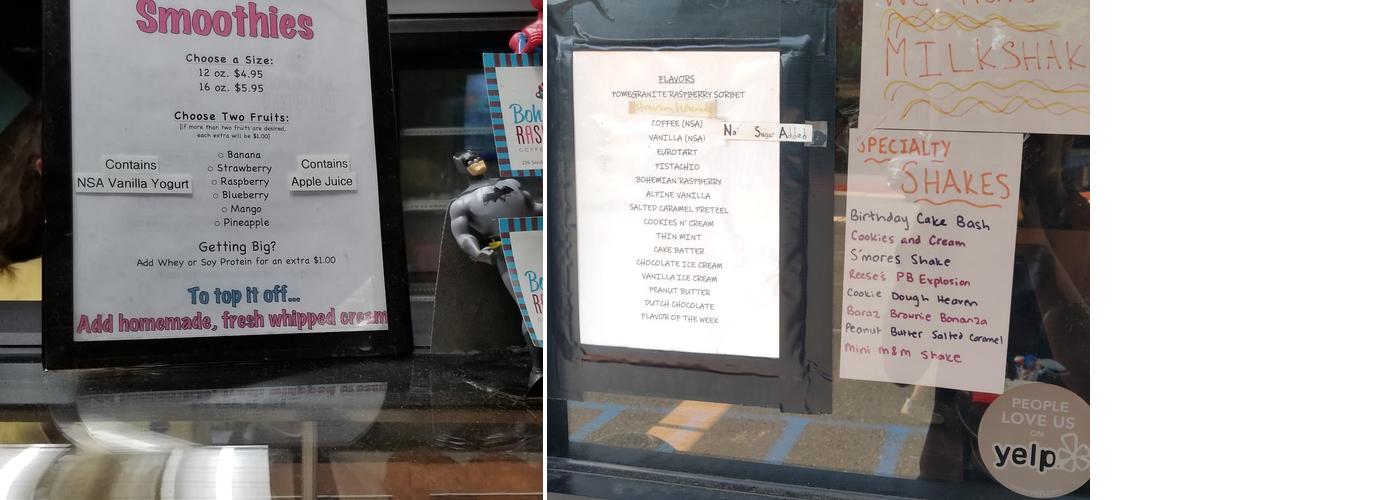 Smoothies
Choose a Size:
12 oz. $4.95
16 oz. $5.95
Choose Two Fruits:
[if more than two fruits are desired,
each extra will be $1.00]
Contains
NSA Vanilla Yogurt
Banana
Strawberry
Raspberry
Blueberry
Mango
Pineapple
Contains
Apple Juice
Getting Big?
Add Whey or Soy Protein for an extra $1.00
To top it off...
Add homemade, fresh whipped cream
FLAVORS
POMEGRANITE RASPBERRY SORBET
COFFEE (NSA)
VANILLA (NSA)
No Sugar Added
EUROTART
PISTACHIO
BOHEMIAN RASPBERRY
ALPINE VANILLA
SALTED CARAMEL PRETZEL
COOKIES N' CREAM
THIN MINT
CAKE BATTER
CHOCOLATE ICE CREAM
VANILLA ICE CREAM
PEANUT BUTTER
DUTCH CHOCOLATE
FLAVOR OF THE WEEK
MILKSHAK
SPECIALTY
SHAKES
Birthday Cake Bash
Cookies and Cream
S'mores Shake
Reese's PB Explosion
Cookie Dough Heaven
Boraz Brownie Bonanza
Peanut Butter Salted Caramel
Mini M&M Shake
PEOPLE
LOVE US
ON
yelp